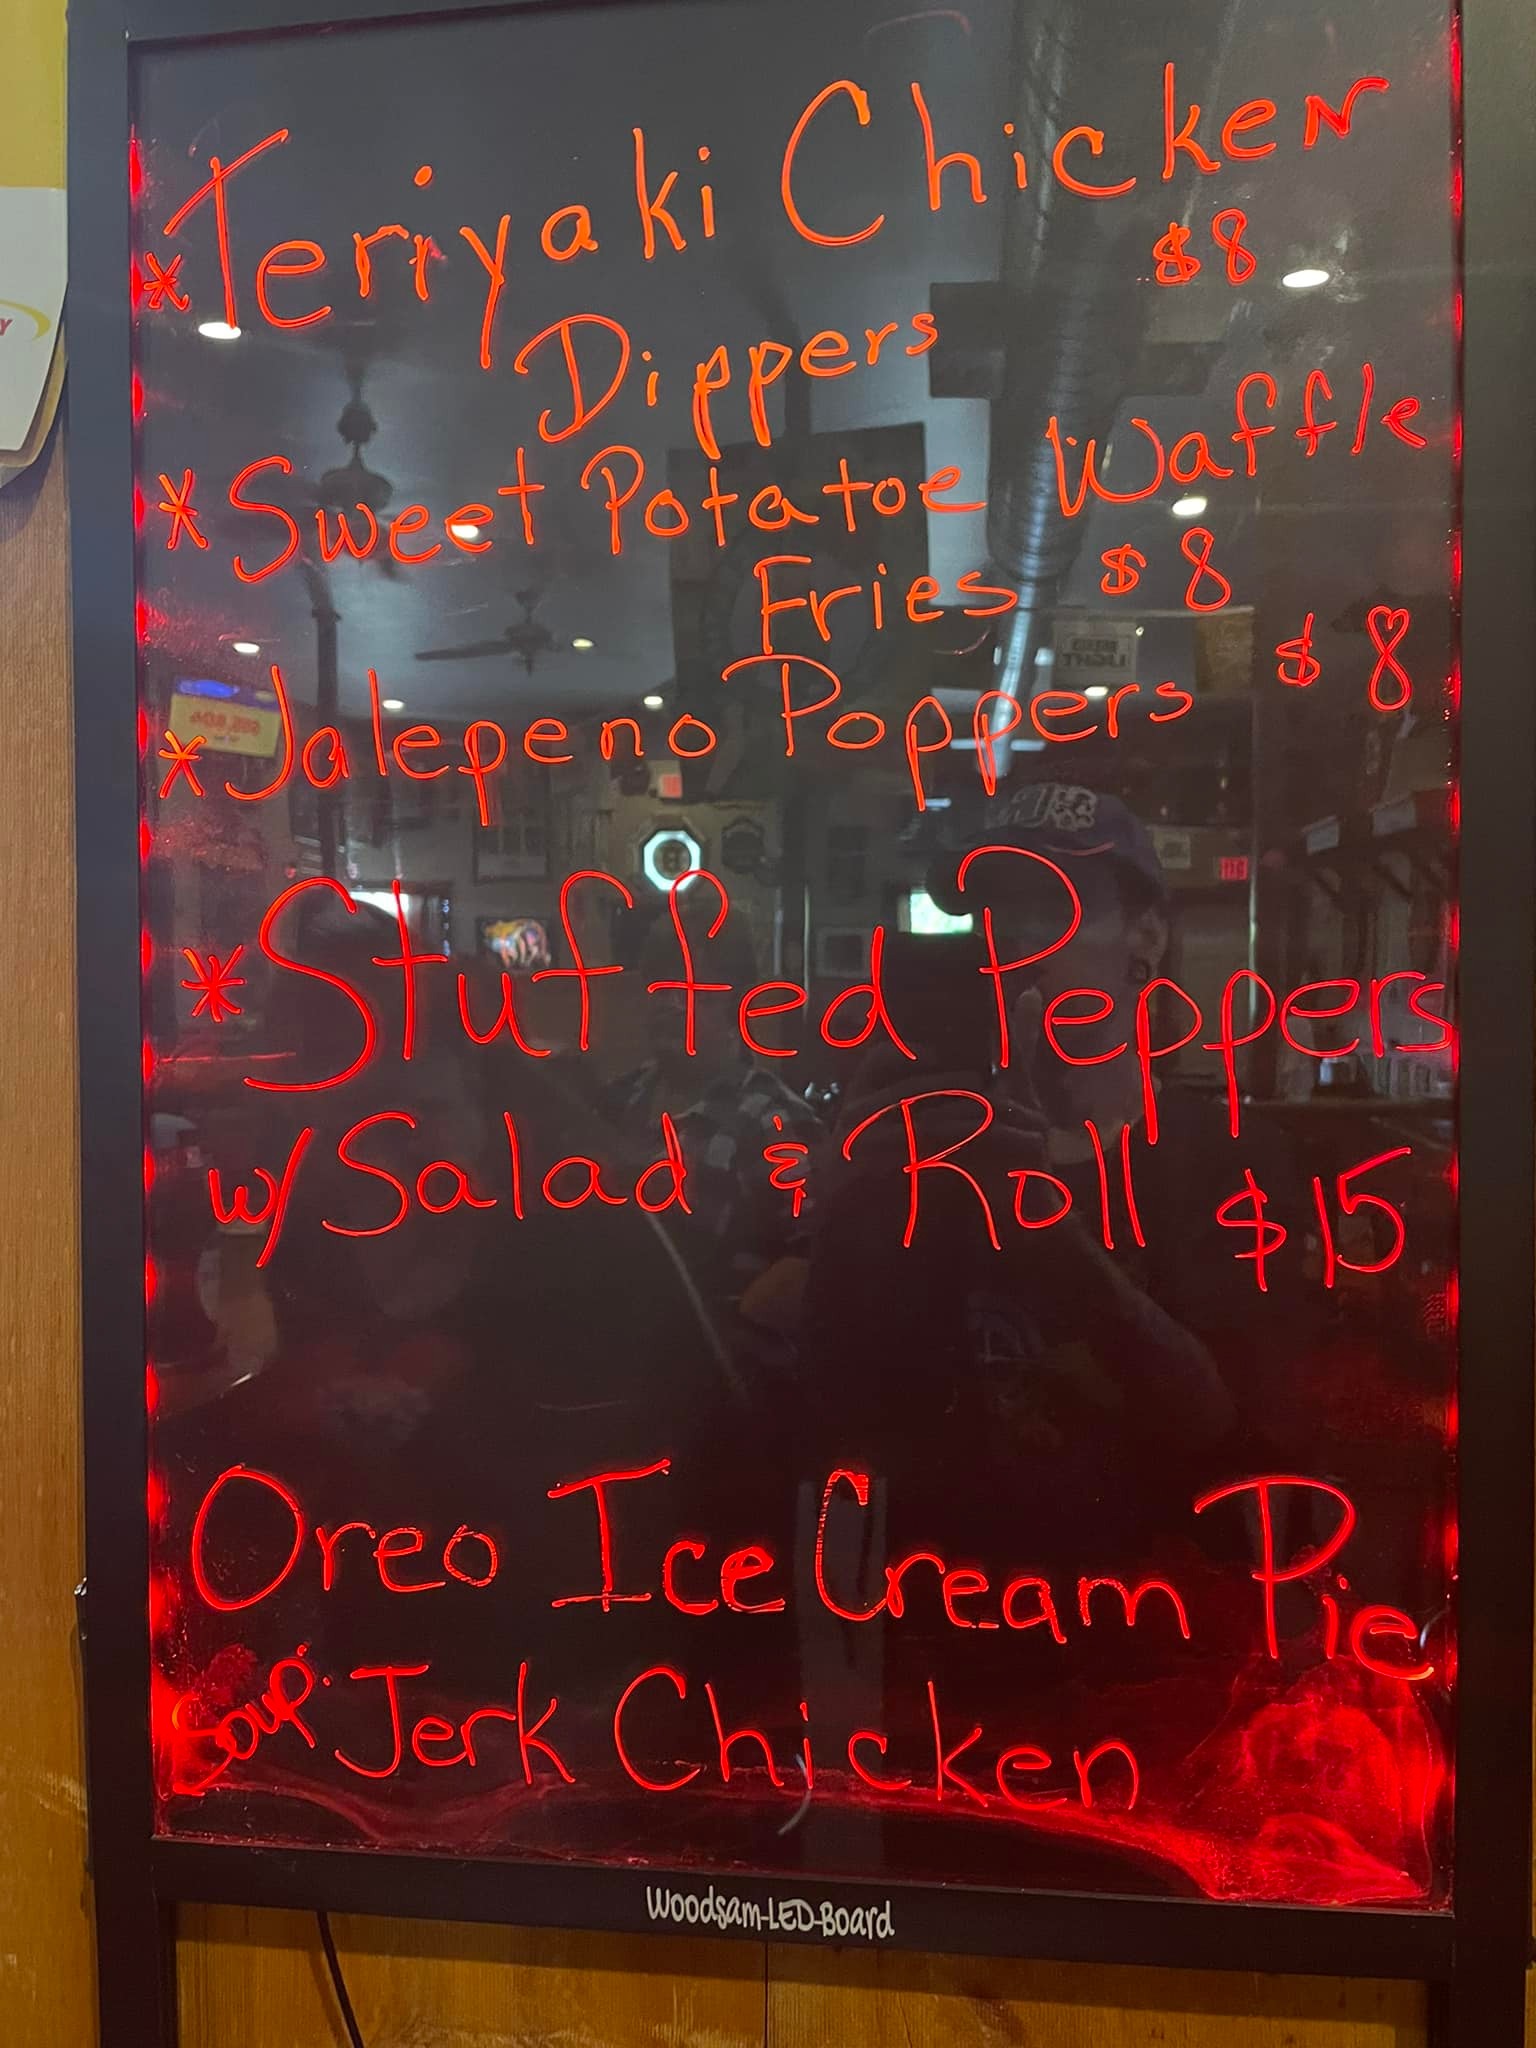 *Teriyaki Chicken
$8
Dippers
*Sweet Potatoe Waffle
Fries $8
*Jalepeno Poppers $8
*Stuffed Peppers
w/ Salad & Roll $15
Oreo Ice Cream Pie
Soup: Jerk Chicken
Woodsam-LED-Board